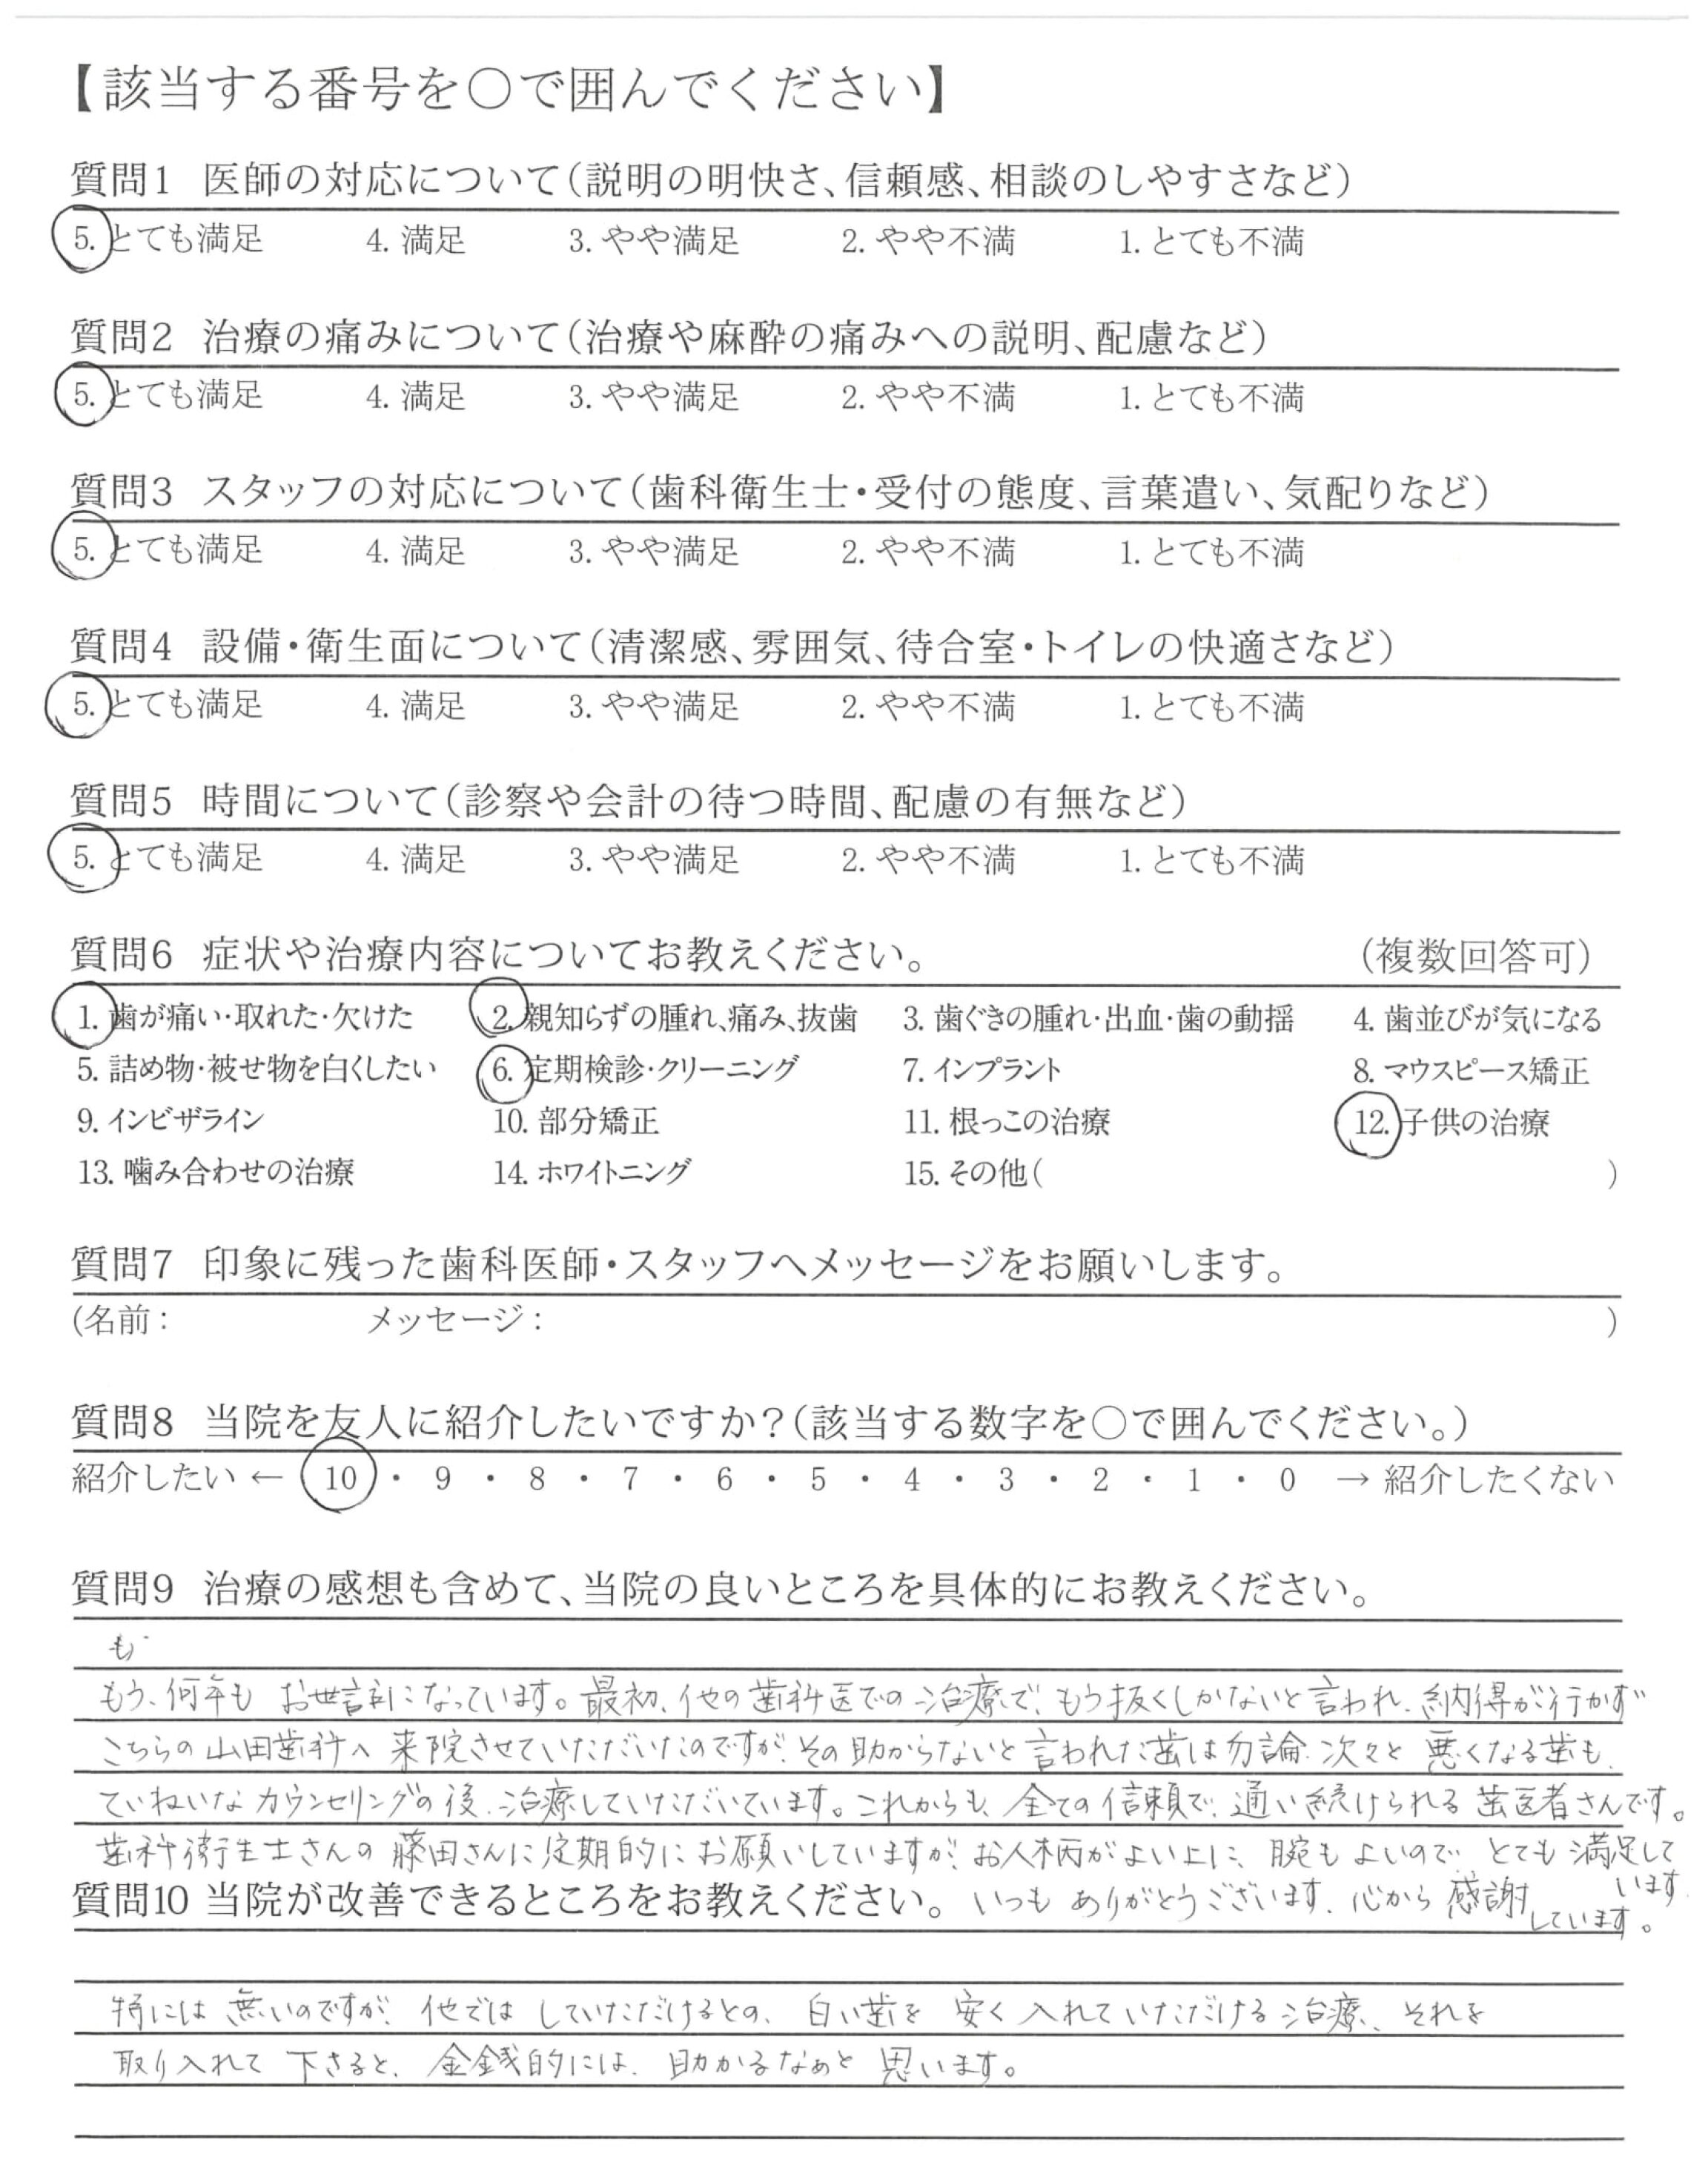 【該当する番号を〇で囲んでください】
質問1 医師の対応について（説明の明快さ、信頼感、相談のしやすさなど）
5. とても満足 4. 満足 3. やや満足 2. やや不満 1. とても不満
質問2 治療の痛みについて（治療や麻酔の痛みへの説明、配慮など）
5. とても満足 4. 満足 3. やや満足 2. やや不満 1. とても不満
質問3 スタッフの対応について（歯科衛生士・受付の態度、言葉遣い、気配りなど）
5. とても満足 4. 満足 3. やや満足 2. やや不満 1. とても不満
質問4 設備・衛生面について（清潔感、雰囲気、待合室・トイレの快適さなど）
5. とても満足 4. 満足 3. やや満足 2. やや不満 1. とても不満
質問5 時間について（診察や会計の待つ時間、配慮の有無など）
5. とても満足 4. 満足 3. やや満足 2. やや不満 1. とても不満
質問6 症状や治療内容についてお教えください。 （複数回答可）
1. 歯が痛い・取れた・欠けた 2. 親知らずの腫れ、痛み、抜歯 3. 歯ぐきの腫れ・出血・歯の動揺 4. 歯並びが気になる
5. 詰め物・被せ物を白くしたい 6. 定期検診・クリーニング 7. インプラント 8. マウスピース矯正
9. インビザライン 10. 部分矯正 11. 根っこの治療 12. 子供の治療
13. 噛み合わせの治療 14. ホワイトニング 15. その他（ ）
質問7 印象に残った歯科医師・スタッフへメッセージをお願いします。
(名前： メッセージ： )
質問8 当院を友人に紹介したいですか？（該当する数字を〇で囲んでください。）
紹介したい ← 10 ・ 9 ・ 8 ・ 7 ・ 6 ・ 5 ・ 4 ・ 3 ・ 2 ・ 1 ・ 0 → 紹介したくない
質問9 治療の感想も含めて、当院の良いところを具体的にお教えください。
も
もう、何年も お世話になっています。最初、他の歯科医での治療で、もう抜くしかないと言われ、納得が行かず
こちらの山田歯科へ 来院させていただいたのですが、その助からないと言われた歯は勿論、次々と悪くなる歯も、
ていねいなカウンセリングの後、治療していただいています。これからも、全ての信頼で、通い続けられる歯医者さんです。
歯科衛生士さんの藤田さんに定期的にお願いしていますが、お人柄がよい上に、腕もよいので、とても満足して
います
質問10 当院が改善できるところをお教えください。 いつもありがとうございます。心から感謝
しています。
特には無いのですが、他ではしていただけるとの、白い歯を安く入れていただける治療、それを
取り入れて下さると、金銭的には、助かるなぁと思います。